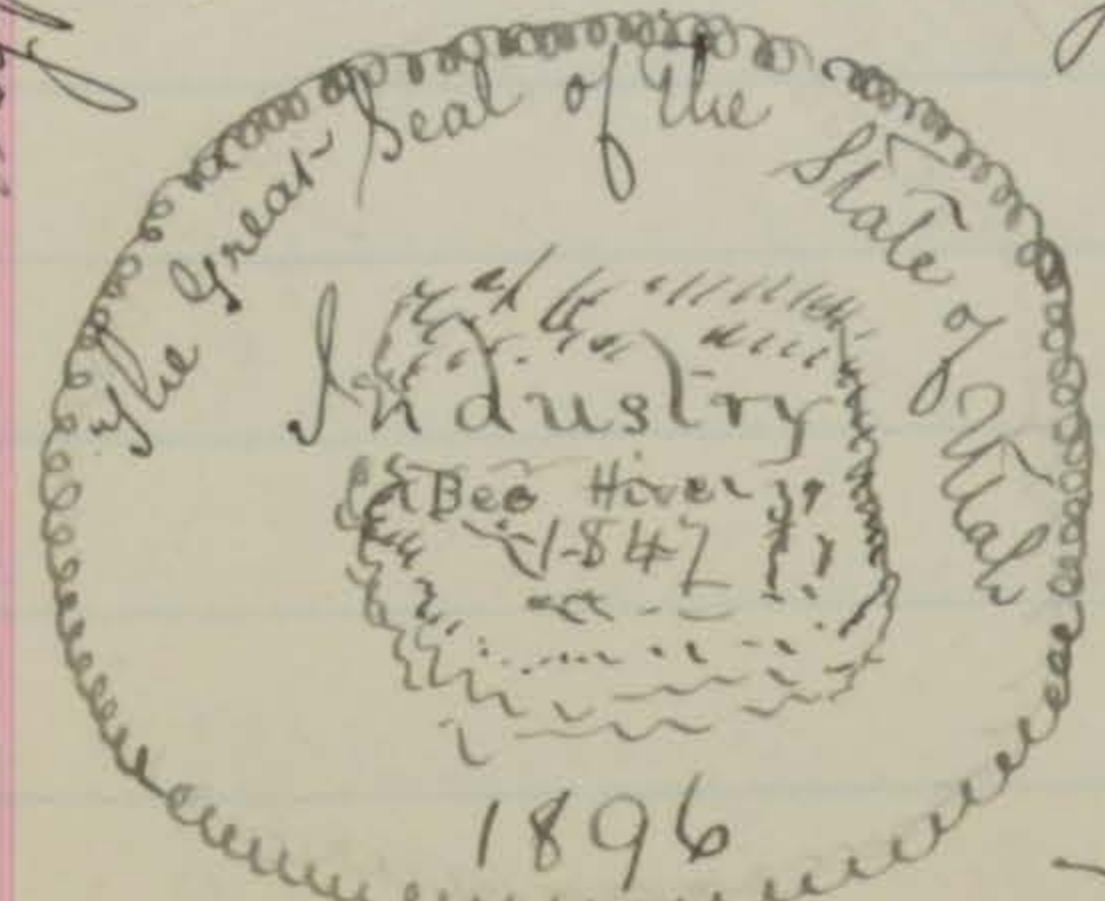 The Great Seal of The State of Utah
Industry
Bee Hive
1847
1896